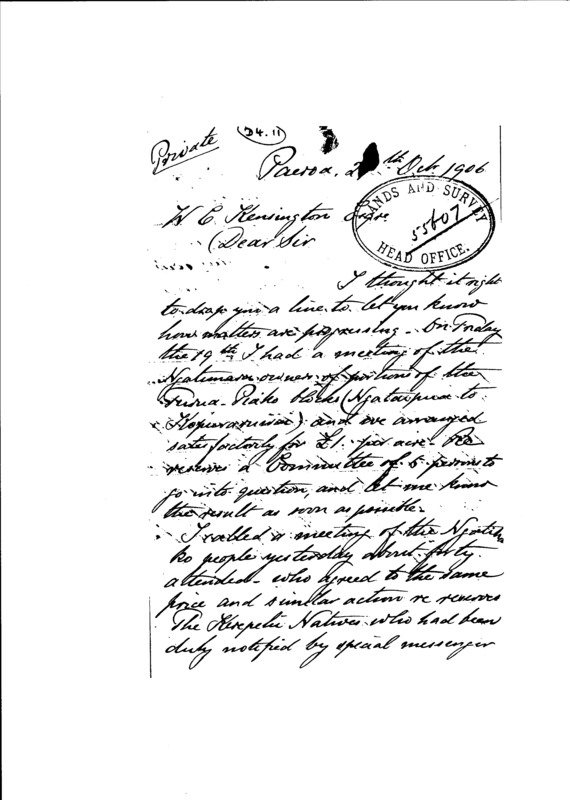 Private
D4.11
Paeroa, 2 th Oct 1906
W C Kensington Esqre
Dear Sir
LANDS AND SURVEY
55607
HEAD OFFICE.
I thought it right
to drop you a line to let you know
how matters are progressing - On Friday
the 19th I had a meeting of the
Ngatimaru owners of portion of the
Piako blocks (Ngataipua to
) and we arranged
satisfactorily for £1. per acre. Re
reserves a Committee of 5 persons to
go into question, and let me know
the result as soon as possible.
I called a meeting of the Ngatiha
ko people yesterday about forty
attended - who agreed to the same
price and similar action re reserves
The Kerepehi Natives who had been
duly notified by special messenger